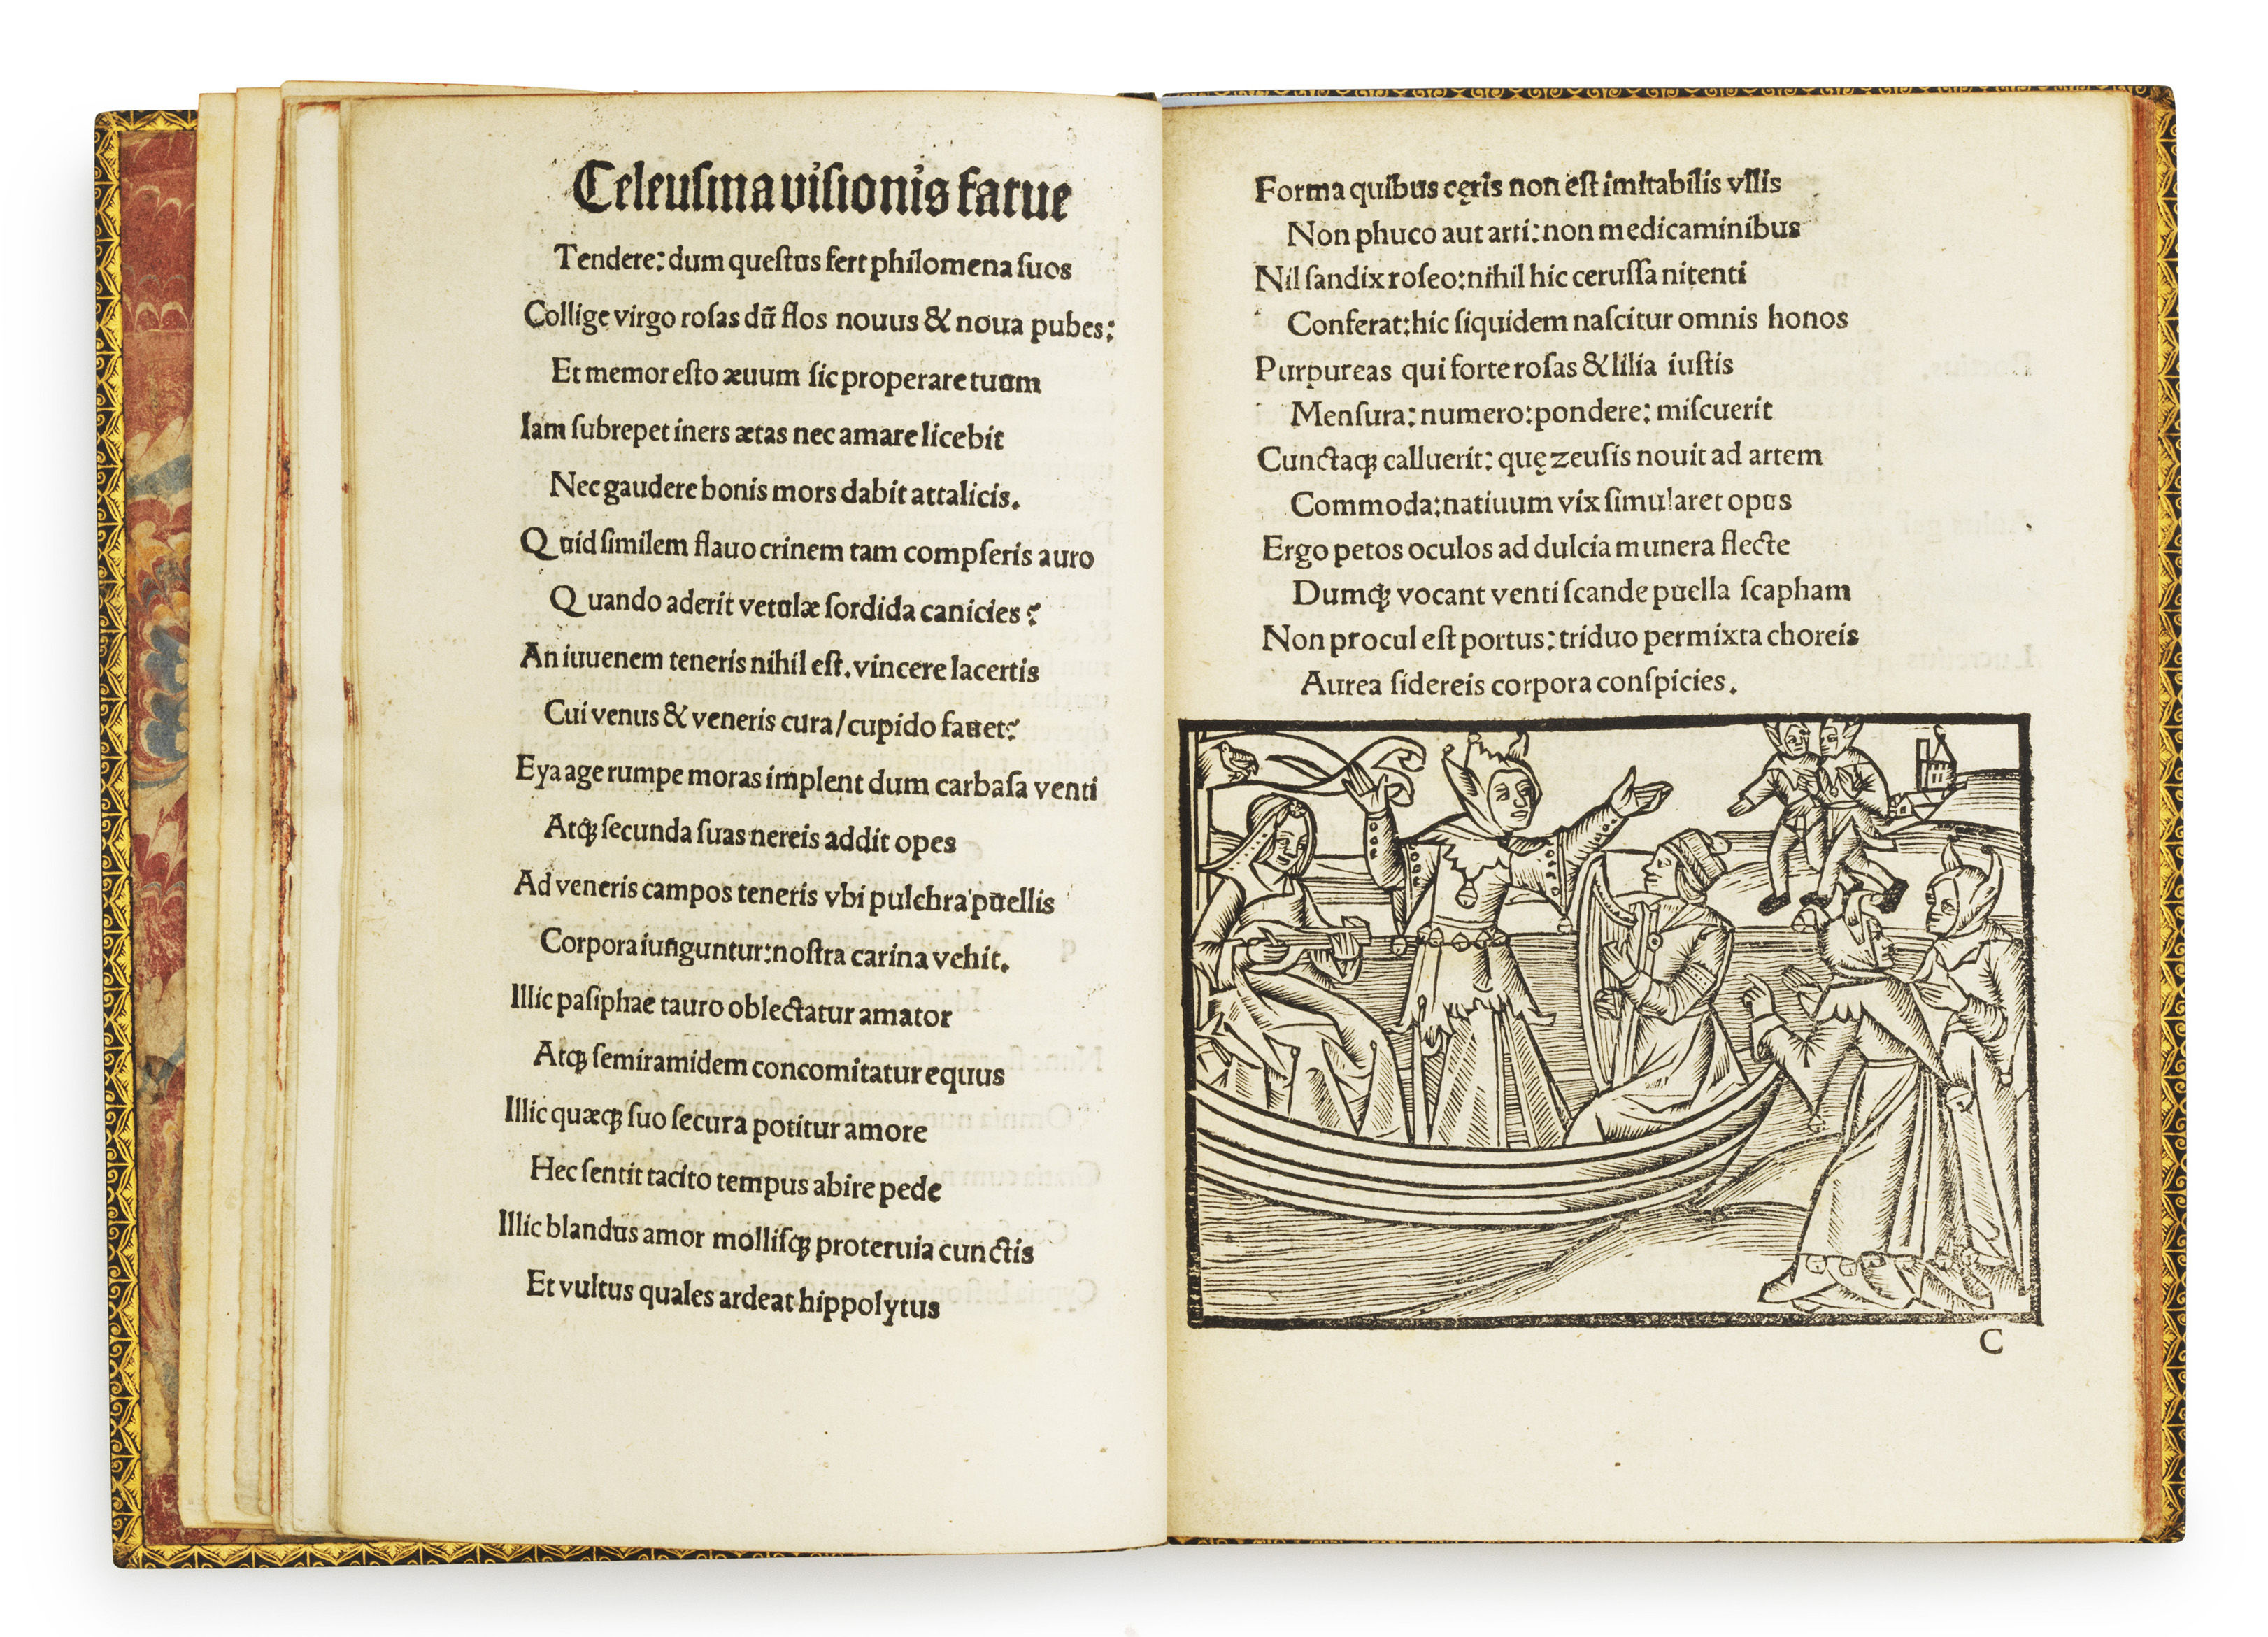 Celeuſma viſionis fatue
Tendere: dum queſtus fert philomena ſuos
Collige virgo roſas dũ flos nouus & noua pubes:
Et memor eſto æuum ſic properare tuum
Iam ſubrepet iners ætas nec amare licebit
Nec gaudere bonis mors dabit attalicis.
Quid ſimilem flauo crinem tam compſeris auro
Quando aderit vetulæ ſordida canicies?
An iuuenem teneris nihil eſt. vincere lacertis
Cui venus & veneris cura/cupido fauet?
Eya age rumpe moras implent dum carbaſa venti
Atqꝫ ſecunda ſuas nereis addit opes
Ad veneris campos teneris vbi pulchra puellis
Corpora iunguntur: noſtra carina vehit.
Illic paſiphae tauro oblectatur amator
Atqꝫ ſemiramidem concomitatur equus
Illic quæqꝫ ſuo ſecura potitur amore
Hec ſentit tacito tempus abire pede
Illic blandus amor molliſqꝫ proteruia cunctis
Et vultus quales ardeat hippolytus
Forma quibus cęris non eſt imitabilis vllis
Non phuco aut arti: non medicaminibus
Nil ſandix roſeo: nihil hic ceruſſa nitenti
Conferat: hic ſiquidem naſcitur omnis honos
Purpureas qui forte roſas & lilia iuſtis
Menſura: numero: pondere: miſcuerit
Cunctaqꝫ calluerit: quę zeuſis nouit ad artem
Commoda: natiuum vix ſimularet opus
Ergo petos oculos ad dulcia munera flecte
Dumqꝫ vocant venti ſcande puella ſcapham
Non procul eſt portus: triduo permixta choreis
Aurea ſidereis corpora conſpicies.
C